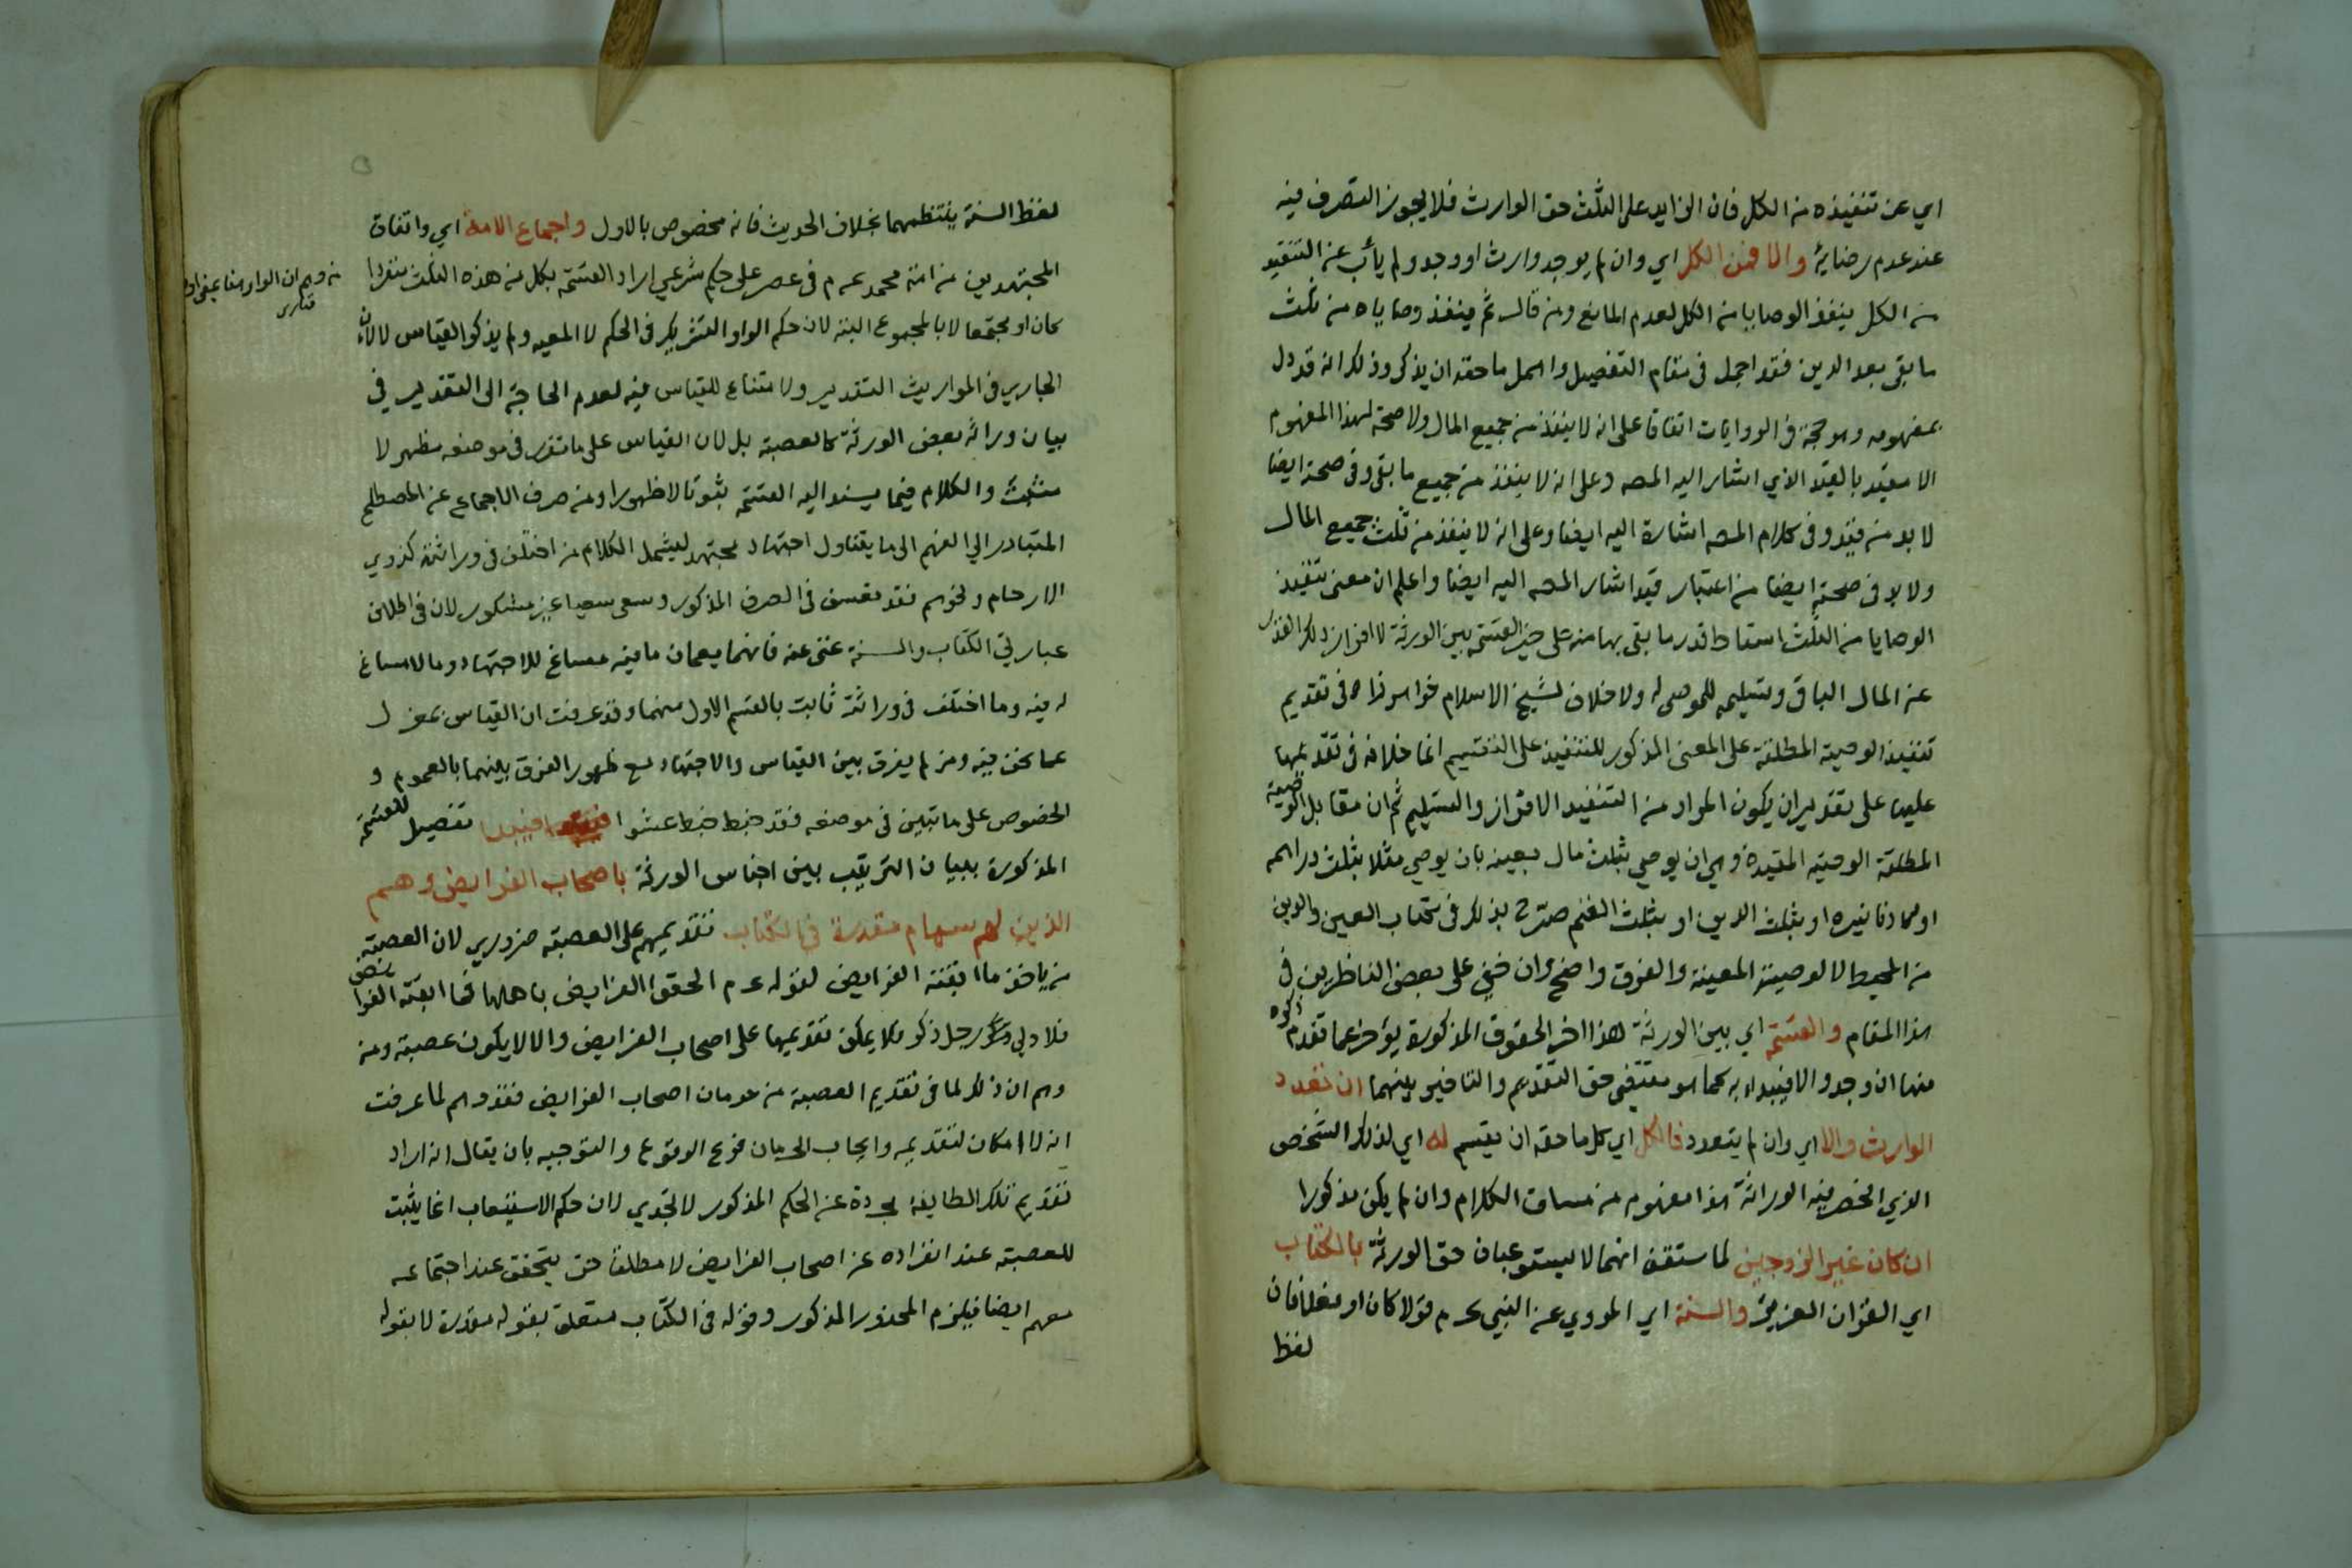 اي عن تنفيذه من الكل فان الزايد على الثلث حق الوارث فلا يجوز التصرف فيه
عند عدم رضاية والا فمن الكل اي وان لم يوجد وارث او وجد ولم يأب عن التنفيذ
من الكل ينفذ الوصايا من الكل لعدم المانع ومن قال ثم ينفذ وصاياه من ثلث
ما بقى بعد الدين فقد اجمل فى مقام التفصيل واهمل ما حقه ان يذكر وذلك انه قد دل
بمفهومه وهو حجة فى الروايات اتفاقا على انه لا ينفذ من جميع المال ولا صحة لهذا المفهوم
الا مقيد بالقيد الذي اشار اليه المصه وعلى انه لا ينفذ من جميع ما بقى وفى صحته ايضا
لا بد من قيد وفى كلام المصه اشارة اليه ايضا وعلى انه لا ينفذ من ثلث جميع المال
ولا بد فى صحته ايضا من اعتبار قيد اشار المصه اليه ايضا واعلم ان معنى تنفيذ
الوصايا من الثلث اسقاط قدر ما بقى بها منه على حيز القسمة بين الورثة لا افراز ذلك القدر
عن المال الباقى وتسليمه للموصى له ولا خلاف لشيخ الاسلام خواهر زاده فى تقديم
تنفيذ الوصية المطلقة على المعنى المذكور للتنفيذ على التقسيم انما خلافه فى تقديمها
عليها على تقدير ان يكون المراد من التنفيذ الافراز والتسليم ثم ان مقابل الوصية
المطلقة الوصية المقيدة وهي ان يوصي بثلث مال بعينه بان يوصي مثلا بثلث دراهمه
او بثلث دنانيره او بثلث الدين او بثلث الغنم صرح بذلك فى كتاب العين والدين
من المحيط لا الوصية المعينة والفرق واضح وان خفى على بعض الناظرين فى
هذا المقام والقسمة اي بين الورثة هذا اخر الحقوق المذكورة يؤخر عما تقدم ذكره
منها ان وجد والا فيبداء به كما هو مقتضى حق التقديم والتاخير بينهما ان تعدد
الوارث والا اي وان لم يتعدد فالكل اي كل ما حقه ان يقسم له اي لذلك الشخص
الذي انحصر فيه الوراثة هذا مفهوم من مساق الكلام وان لم يكن مذكورا
ان كان غير الزوجين لما ستقف انهما لا يستوعبان حق الورثة بالكتاب
اي القرآن العزيز والسنة اي المروي عن النبي عم قولا كان او فعلا فان
لفظ
لفظ السنة ينتظمهما بخلاف الحديث فانه مخصوص بالاول واجماع الامة اي واتفاق
المجتهدين من امة محمد عم فى عصر على حكم شرعي اراد القسمة بكل من هذه الثلث منفردا
كان او مجتمعا لا بالمجموع البتة لان حكم الواو التشريك فى الحكم لا المعيه ولم يذكر القياس لا لان
الجاري فى المواريث التقدير ولا متناع للقياس فيه لعدم الحاجة الى التقدير في
بيان وراثة بعض الورثة كالعصبة بل لان القياس على ما تقرر فى موضعه مظهر لا
مثبت والكلام فيما يسند اليه القسمة ثبوتا لا ظهورا ومن صرف الاجماع عن المصطلح
المتبادر الي الفهم الى ما يتناول اجتهاد مجتهد ليشمل الكلام من اختلف فى وراثته كذوي
الارحام ونحوهم فقد تعسف فى الصرف المذكور وسعى سعيا غير مشكور لان فى اطلاق
عبارتي الكتاب والسنة غنى عنه فانهما يعمان ما فيه مساغ للاجتهاد وما لا مساغ
له فيه وما اختلف فى وراثته ثابت بالقسم الاول منهما وقد عرفت ان القياس بمعزل
عما نحن فيه ومن لم يفرق بين القياس والاجتهاد مع ظهور الفرق بينهما بالعموم و
الخصوص على ما تبين فى موضعه فقد خبط خبط عشوا فيبدا تفصيل للقسمة
المذكورة ببيان الترتيب بين اجناس الورثة باصحاب الفرايض وهم
الذين لهم سهام مقدرة في الكتاب تقديمهم على العصبة ضروري لان العصبة
من ياخذ ما ابقته الفرايض لقوله عم الحقوا الفرايض باهلها فما ابقته الفرائض
فلاولي رجل ذكر فلا يمكن تقديمها على اصحاب الفرايض والا لا يكون عصبة ومن
وهم ان ذلك لما فى تقديم العصبة من حرمان اصحاب الفرايض فقد وهم لما عرفت
انه لا امكان لتقديمه وايجاب الحرمان فرع الوقوع والتوجيه بان يقال انه اراد
تقديم تلك الطايفة مجردة عن الحكم المذكور لا تجدي لان حكم الاستيعاب انما يثبت
للعصبة عند انفراده عن اصحاب الفرايض لا مطلقا حتى يتحقق عند اجتماعه
معهم ايضا فيلزم المحذور المذكور وقوله فى الكتاب متعلق بقوله مقدرة لا بقوله
من وهم ان الواو هنا بمعنى او